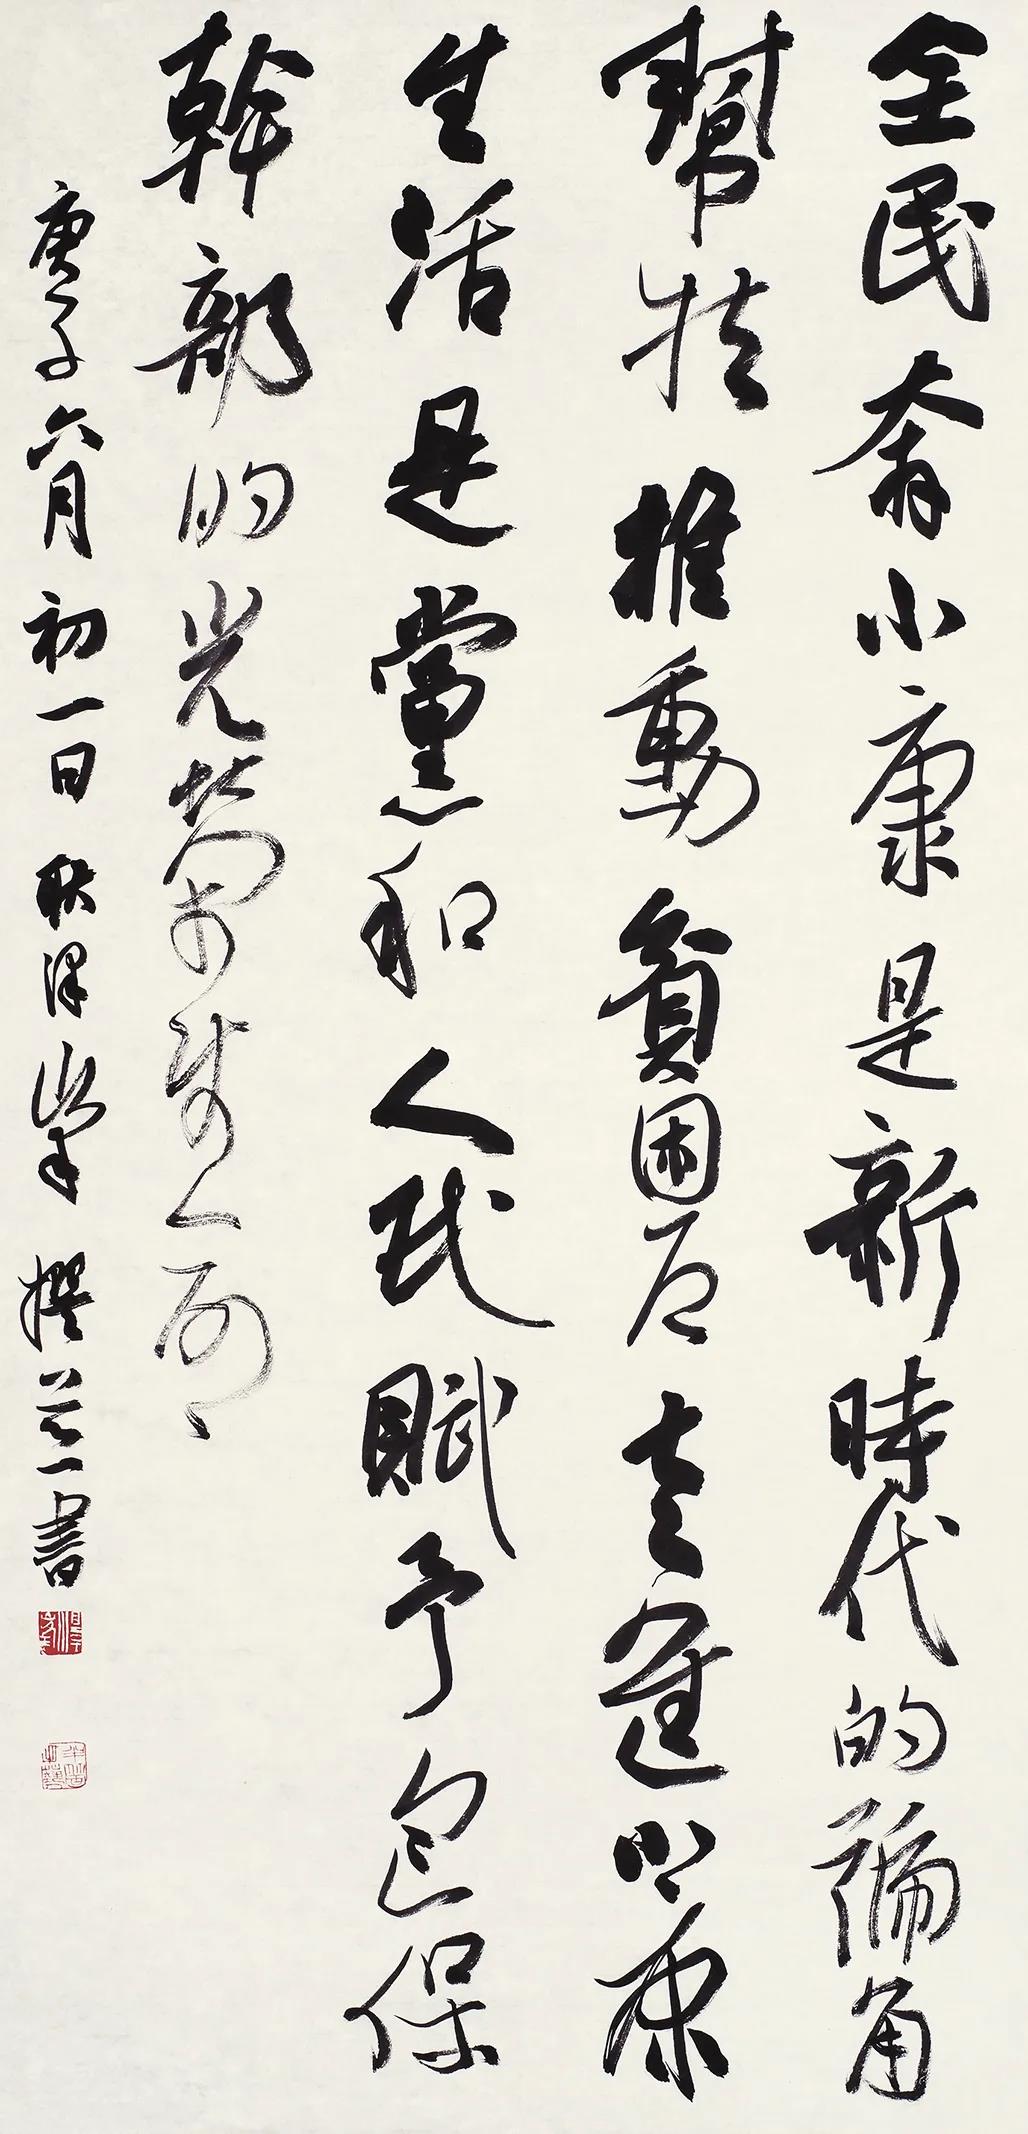 全民奔小康是新時代的號角
幫扶推動貧困戶走進小康
生活是黨和人民賦予包保
幹部的光榮
庚子六月初一日耿澤撰并書